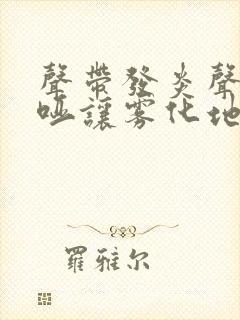 聲帶發炎聲
啞讓雾化地
羅雅尔